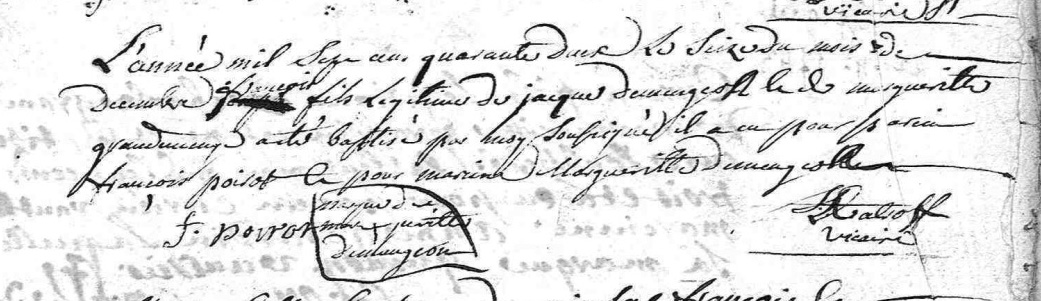 vicaire St
L'année mil Sept cens quarante deux Le Seize du mois de
Decembre françois fils Legitime de jacque demengeoll et de margueritte
grandemenge a été baptisé par moy Soussigné il a eu pour parein
françois poirot et pour mareine Marguerittte demengeolle
f. poirot marque de
margueritte
Demengeon
vicaire
françois